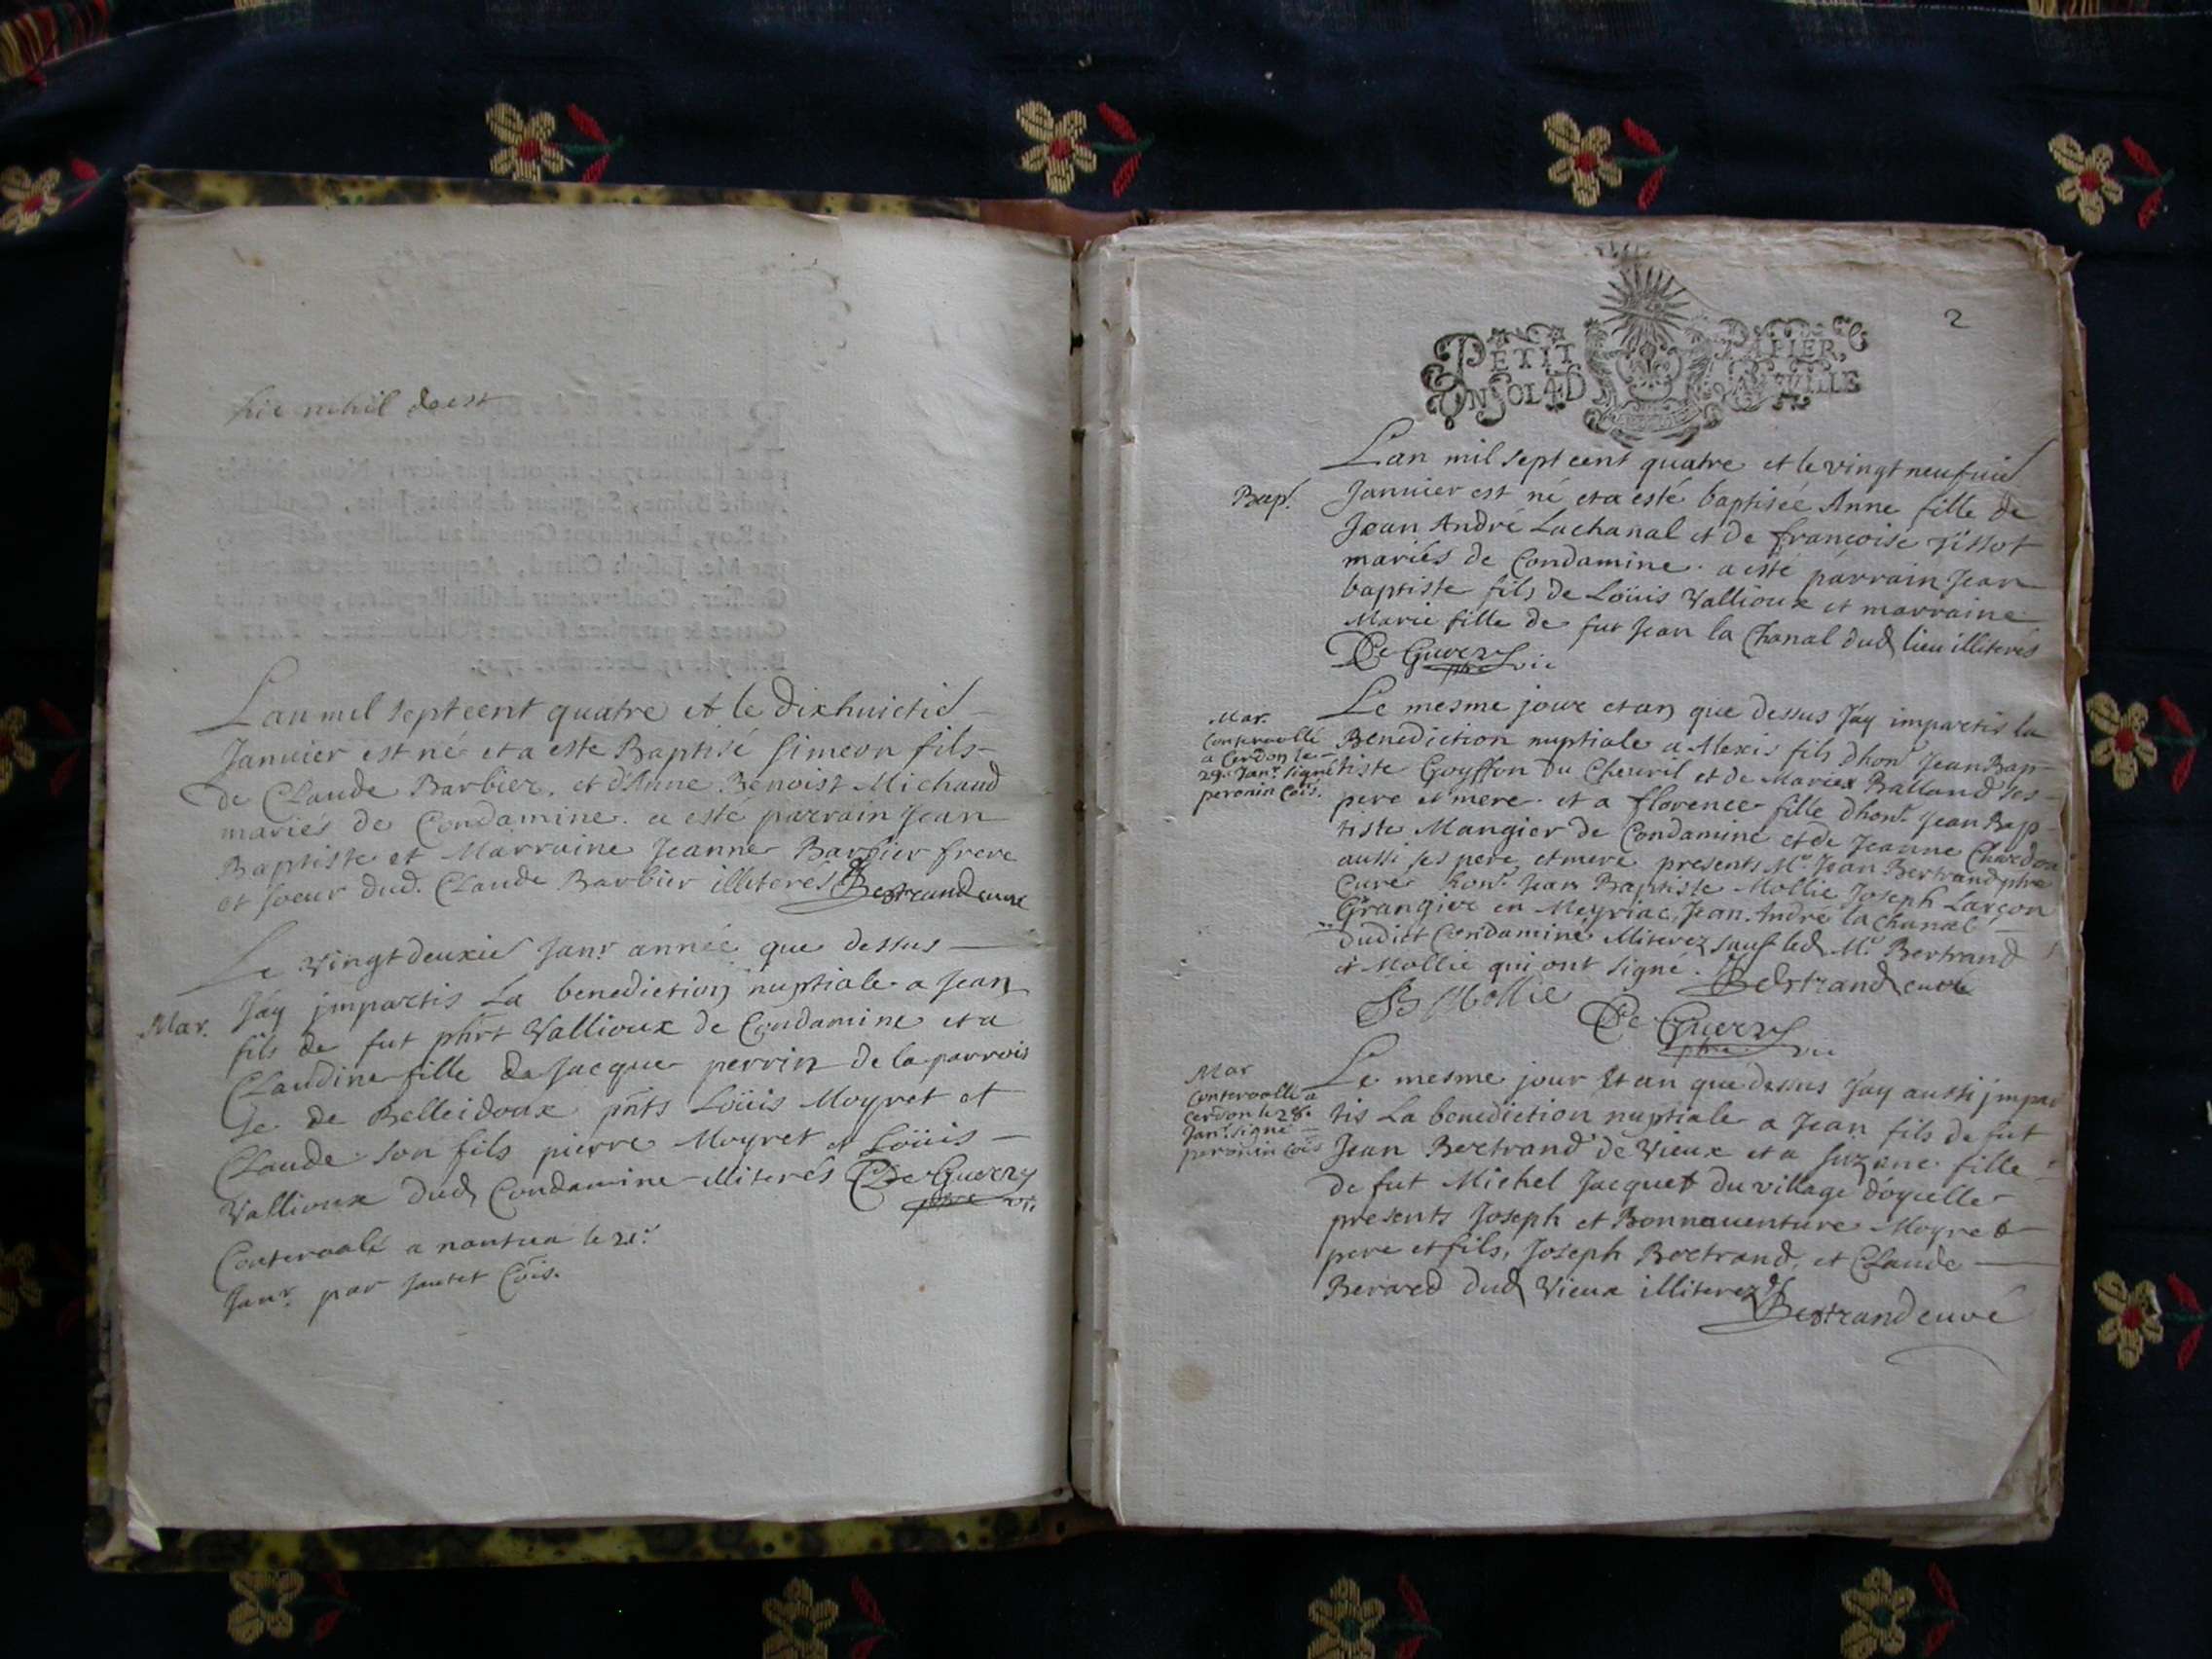 hic nihil deest
Lan mil sept cent quatre et le dixhuictie
Januier est né et a este Baptisé Simeon fils
de Claude Barbier, et d'Anne Benoist Michaud
mariés de Condamine. a esté parrain Jean
Baptiste et Marraine Jeanne Barbier frere
et soeur dud. Claude Barbier illiterés Bertrand curé
Le vingtdeuxie Janr année que dessus
Mar.
Jay impartis La benediction nuptiale a Jean
fils de fut phirt Vallioux de Condamine et a
Claudine fille de Jacque perrin de la parrois
se de Belleidoux pnts Loüis Moyret et
Claude son fils pierre Moyret et Loüis
Vallioux dud Condamine illiterés De Guerry
ptre vic.
Conteroolé a nantua le 21e
Janr. par Cois.
2
PETIT PAPIER
UN SOL 4 D LA FEUILLE
Lan mil sept cent quatre et le vingt neufuie
Bap.
Januier est né et a esté baptisée Anne fille de
Jean André Lachanal et de francoise Tissot
mariés de Condamine. a esté parrain Jean
baptiste fils de Loüis Vallioux et marraine
Marie fille de fut Jean la Chanal dud lieu illiterés
De Guerry
ptre vic
Le mesme jour et an que dessus Jay impartis la
Mar.
Conteroollé
a Cerdon le
29e Janr. signé
peronin Cois.
Benediction nuptiale a Alexis fils dhonr. Jean Bap-
tiste Goyffon du Cheuril et de Marie Balland ses
pere et mere. et a florence fille dhonr. Jean Bap-
tiste Mangier de Condamine et de Jeanne Chardon
aussi ses pere et mere presents Mr. Jean Bertrand ptre
Curé honr. Jean Baptiste Mollie Joseph Larçon
Grangier en Meyriac, Jean André la Chanal
dudict Condamine illiterez sauf led Mr. Bertrand
et Mollie qui ont signé. Bertrand curé
JB Mollie
De Guerry
ptre vic
Mar
Conteroollé a
Cerdon le 28e
Janr. signé
peronin Cois
Le mesme jour et an que dessus Jay aussi impar
tis La benediction nuptiale a Jean fils de fut
Jean Bertrand de Vieux et a suzane fille
de fut Michel Jacquet du village doyselle
presents Joseph et Bonnauenture Moyret
pere et fils, Joseph Bertrand, et Claude
Berard dud Vieux illiterez
Bertrand curé